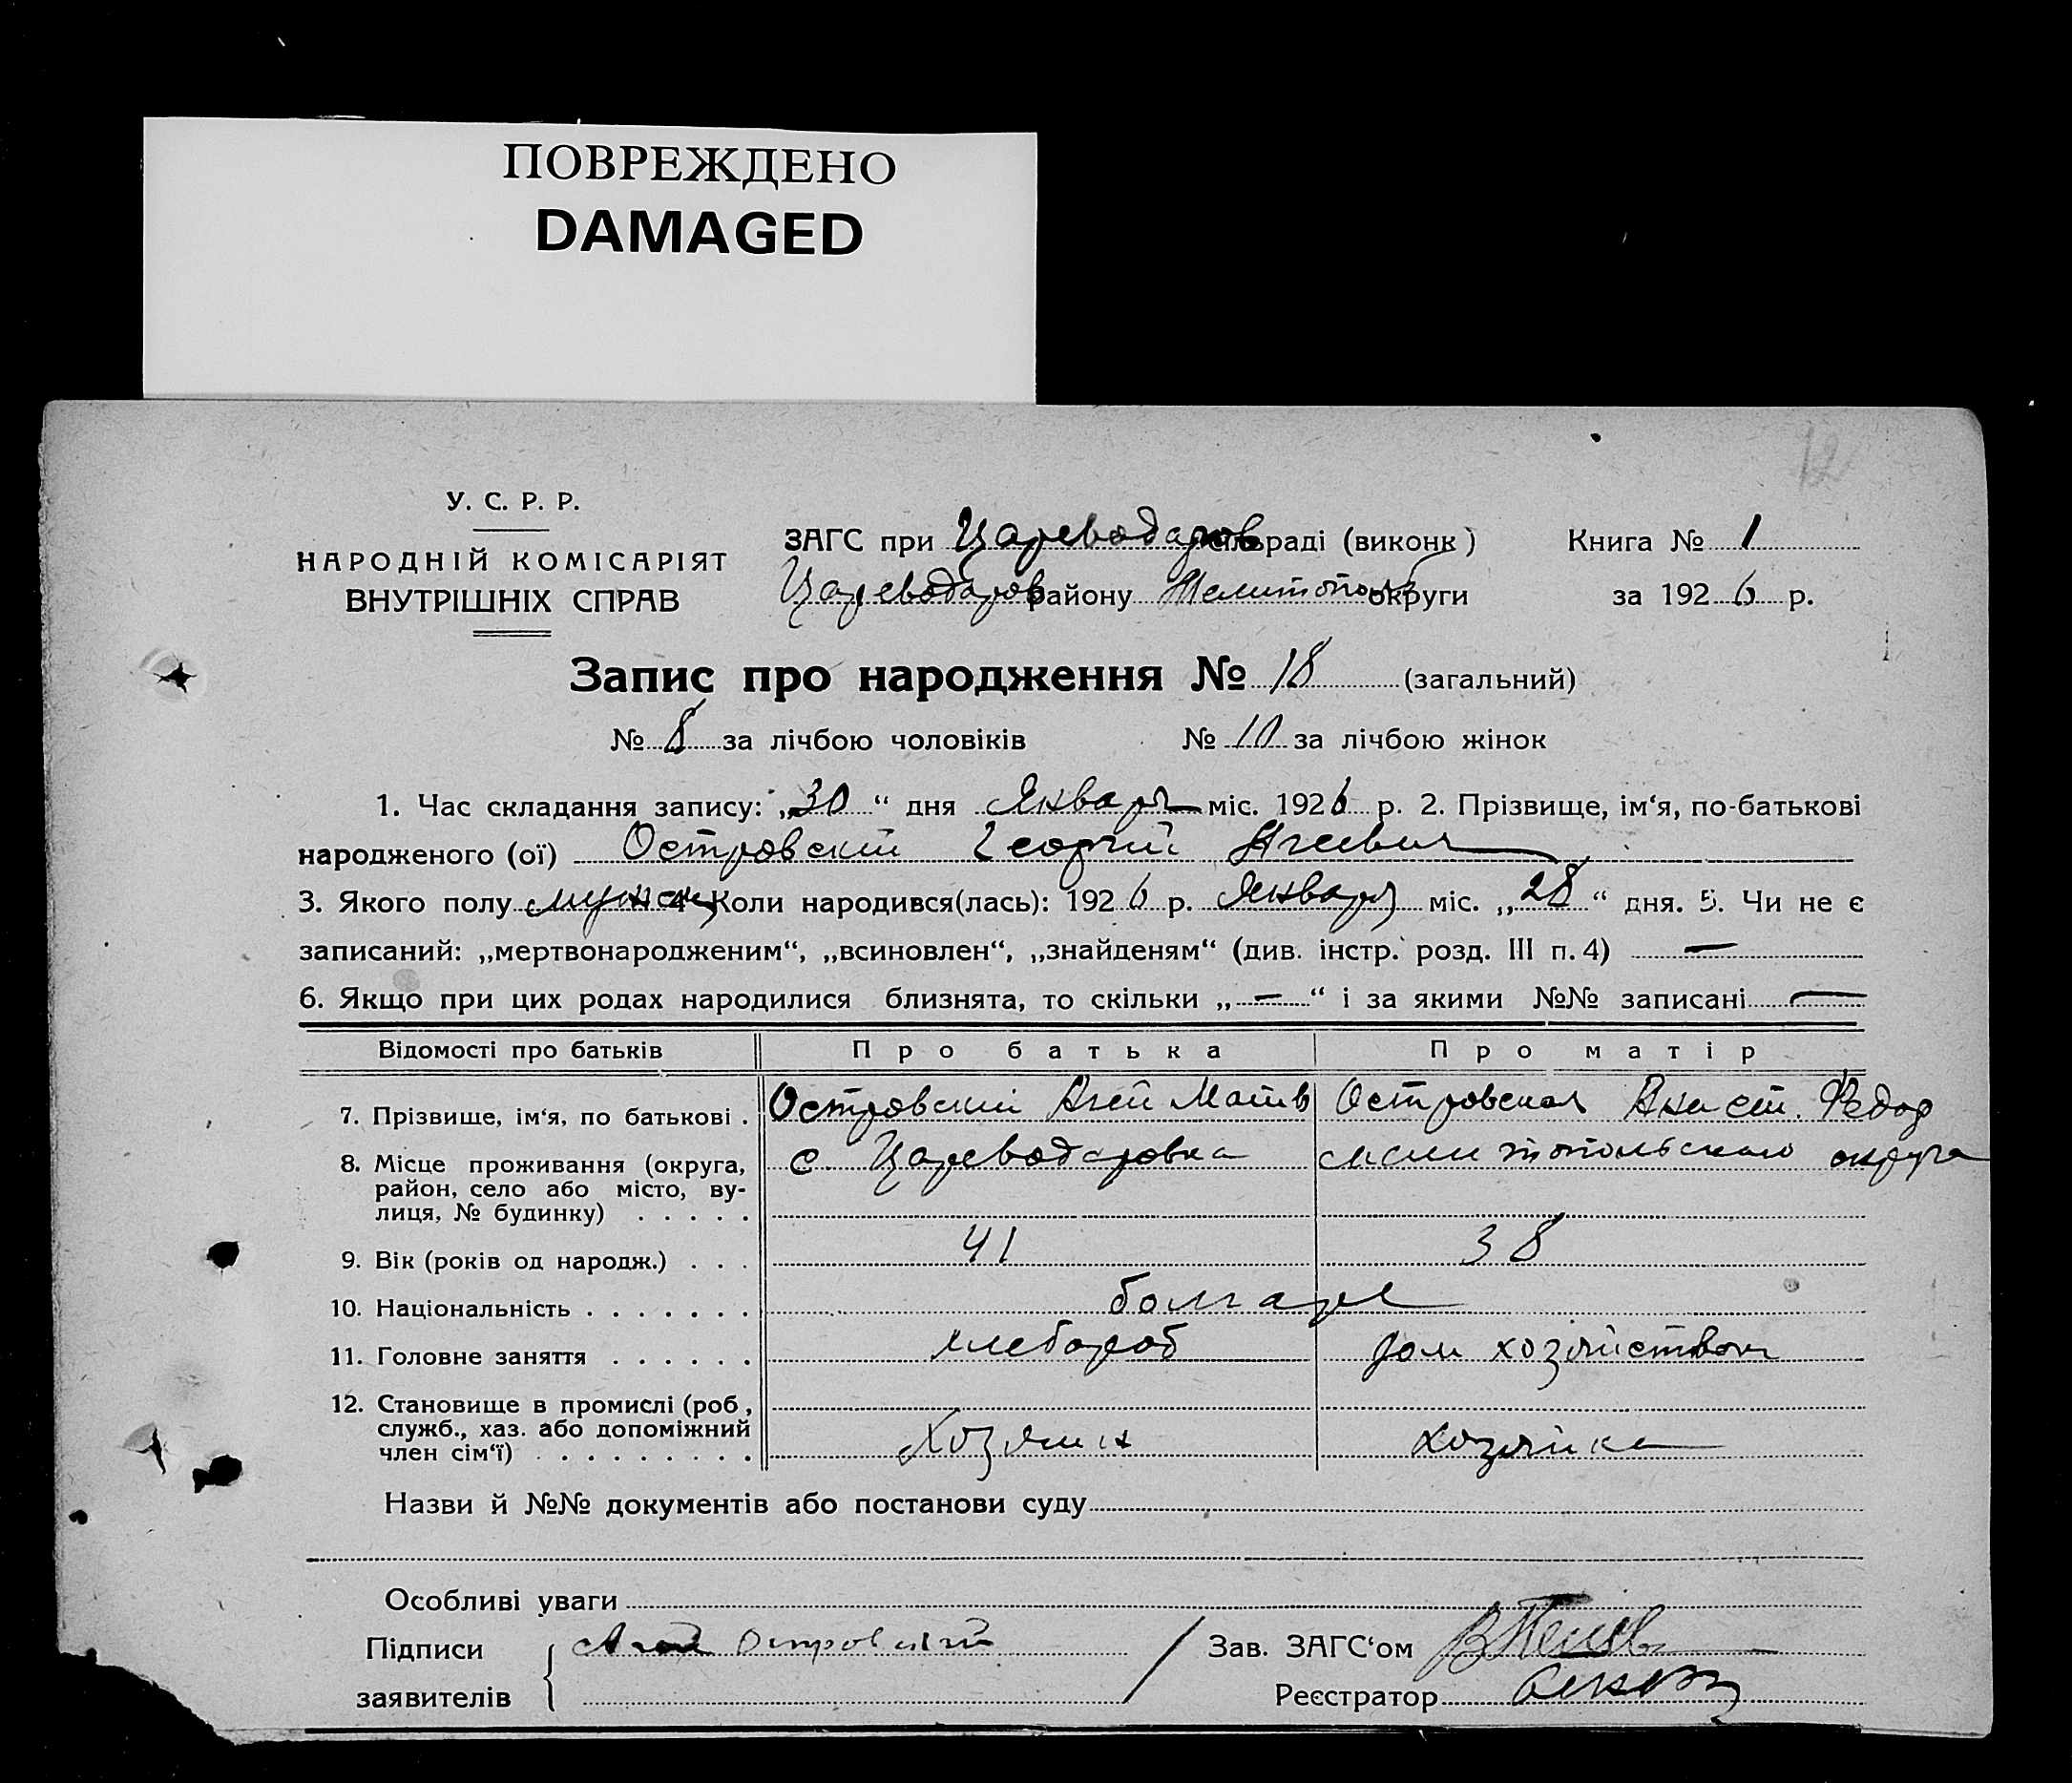 ПОВРЕЖДЕНО
DAMAGED
12
У. С. Р. Р.
НАРОДНІЙ КОМІСАРІЯТ
ВНУТРІШНІХ СПРАВ
ЗАГС при Цареводаров сільраді (виконк)
Цареводаров району Мелитопол округи
Книга № 1
за 1926 р.
Запис про народження № 18 (загальний)
№ 8 за лічбою чоловіків № 10 за лічбою жінок
1. Час складання запису: „30“ дня Января міс. 1926 р. 2. Прізвище, ім‘я, по-батькові
народженого (ої) Островский Георгий Агеевич
3. Якого полу мужск 4 Коли народився(лась): 1926 р. Января міс. „28“ дня. 5. Чи не є
записаний: „мертвонародженим“, „всиновлен“, „знайденям“ (див. інстр. розд. III п. 4) —
6. Якщо при цих родах народилися близнята, то скільки „—“ і за якими №№ записані —
Відомості про батьків Про батька Про матір
7. Прізвище, ім‘я, по батькові . Островский Агей Матив Островская Анаст. Федор
8. Місце проживання (округа, с Цареводаровка мелитопольского округа
район, село або місто, ву-
лиця, № будинку) . . . . .
9. Вік (років од народж.) . . . 41 38
10. Національність . . . . . . . болгаре
11. Головне заняття . . . . . . хлебороб дом хозяйством
12. Становище в промислі (роб,
служб., хаз. або допоміжний хозяин хозяйка
член сім‘ї) . . . . . . . . .
Назви й №№ документів або постанови суду
Особливі уваги
Підписи Агей Островский
заявителів
Зав. ЗАГС‘ом
Реєстратор